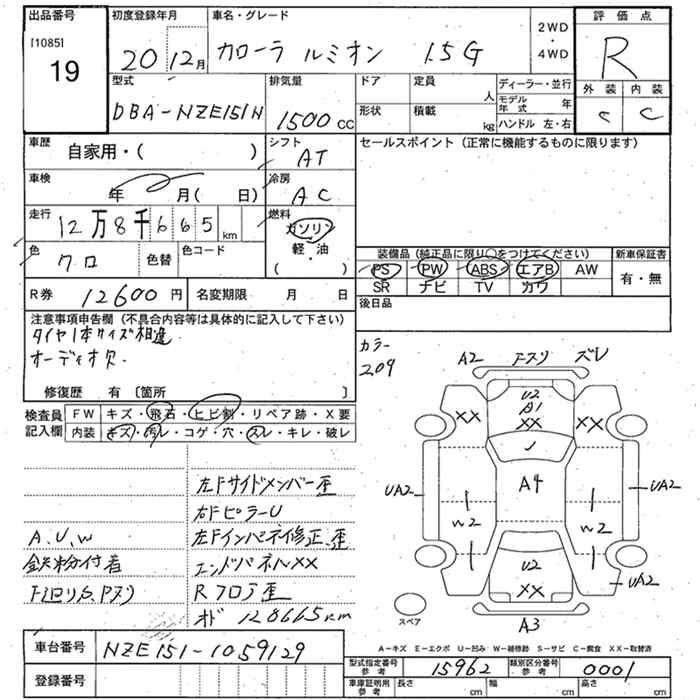 出品番号 初度登録年月 車名・グレード 2WD・4WD 評価点
[1085]
19 20 12月 カローラ ルミオン 1.5G R
型式 排気量 ドア 定員 人 ディーラー・並行 外装 内装
DBA-NZE151N 1500cc 形状 積載 kg モデル年式 年 C C
ハンドル 左・右
車歴 自家用・( ) シフト AT セールスポイント(正常に機能するものに限ります)
車検 年 月( 日) 冷房 AC
走行 12万8千665km 燃料 ガソリン 軽・油 ( )
色 クロ 色替 色コード
装備品(純正品に限り○をつけてください) 新車保証書
PS PW ABS エアB AW 有・無
SR ナビ TV カワ
R券 12600円 名変期限 月 日 後日品
注意事項申告欄(不具合内容等は具体的に記入して下さい)
タイヤ1本サイズ相違
オーディオ欠
修復歴 有〔箇所 〕
カラー
209
検査員記入欄 FW キズ・飛石・ヒビ割・リペア跡・X要
内装 キズ・汚レ・コゲ・穴・スレ・キレ・破レ
左Fサイドメンバー歪
右FピラーU
A.U.W 左Fインパネ修正、歪
鉄粉付着 エンドパネルXX
下回りS、Pスリ Rフロア歪
オド 128665km
A2 Fスリ ズレ
U2
A1
XX XX XX
A4
UA2 UA2
W2 W2
U2
XX UA2
スペア A3
A-キズ E-エクボ U-凹み W-補修跡 S-サビ C-腐食 XX-取替済
車台番号 NZE151-1059129
登録番号
型式指定番号 参考 15962 類別区分番号 参考 0001
車庫証明用 参考 長さ cm 幅 cm 高さ cm